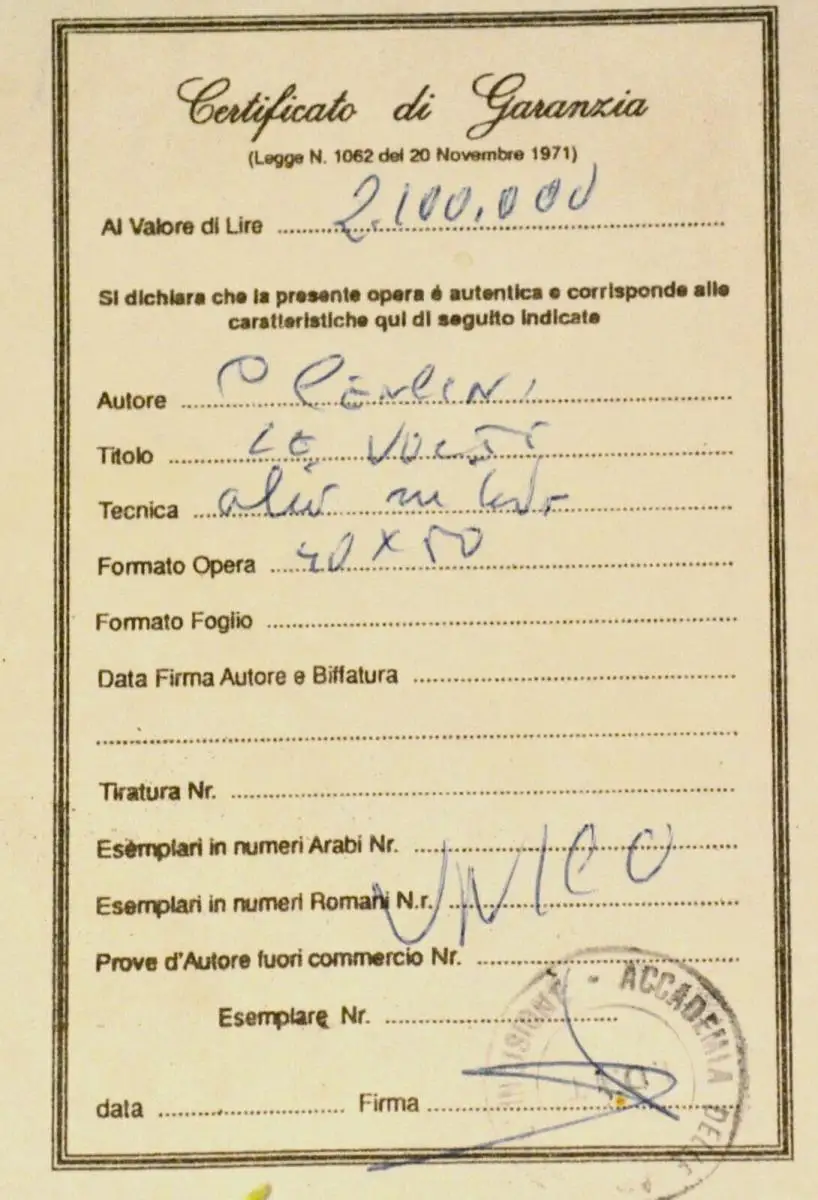 Certificato di Garanzia
(Legge N. 1062 del 20 Novembre 1971)
Al Valore di Lire 2.100.000
Si dichiara che la presente opera é autentica e corrisponde alle
caratteristiche qui di seguito indicate
Autore
Titolo LE
Tecnica olio su
Formato Opera 40 x 50
Formato Foglio
Data Firma Autore e Biffatura
Tiratura Nr.
Esemplari in numeri Arabi Nr.
Esemplari in numeri Romani N.r.
UNICO
Prove d'Autore fuori commercio Nr.
Esemplare Nr.
data Firma
ACCADEMIA DELLE